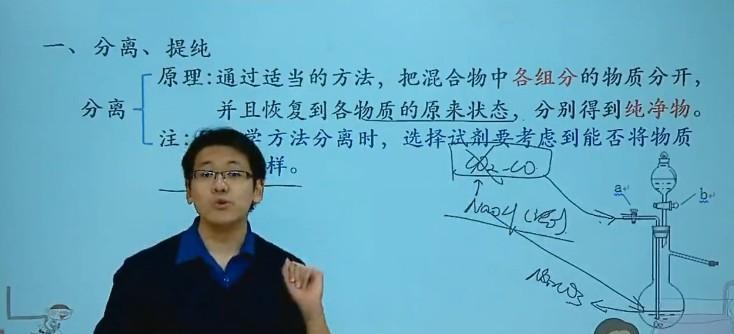 一、分离、提纯
分离
原理:通过适当的方法，把混合物中各组分的物质分开，
并且恢复到各物质的原来状态，分别得到纯净物。
注:
学方法分离时，选择试剂要考虑到能否将物质
样。
CO₂-CO
NaOH
a
b